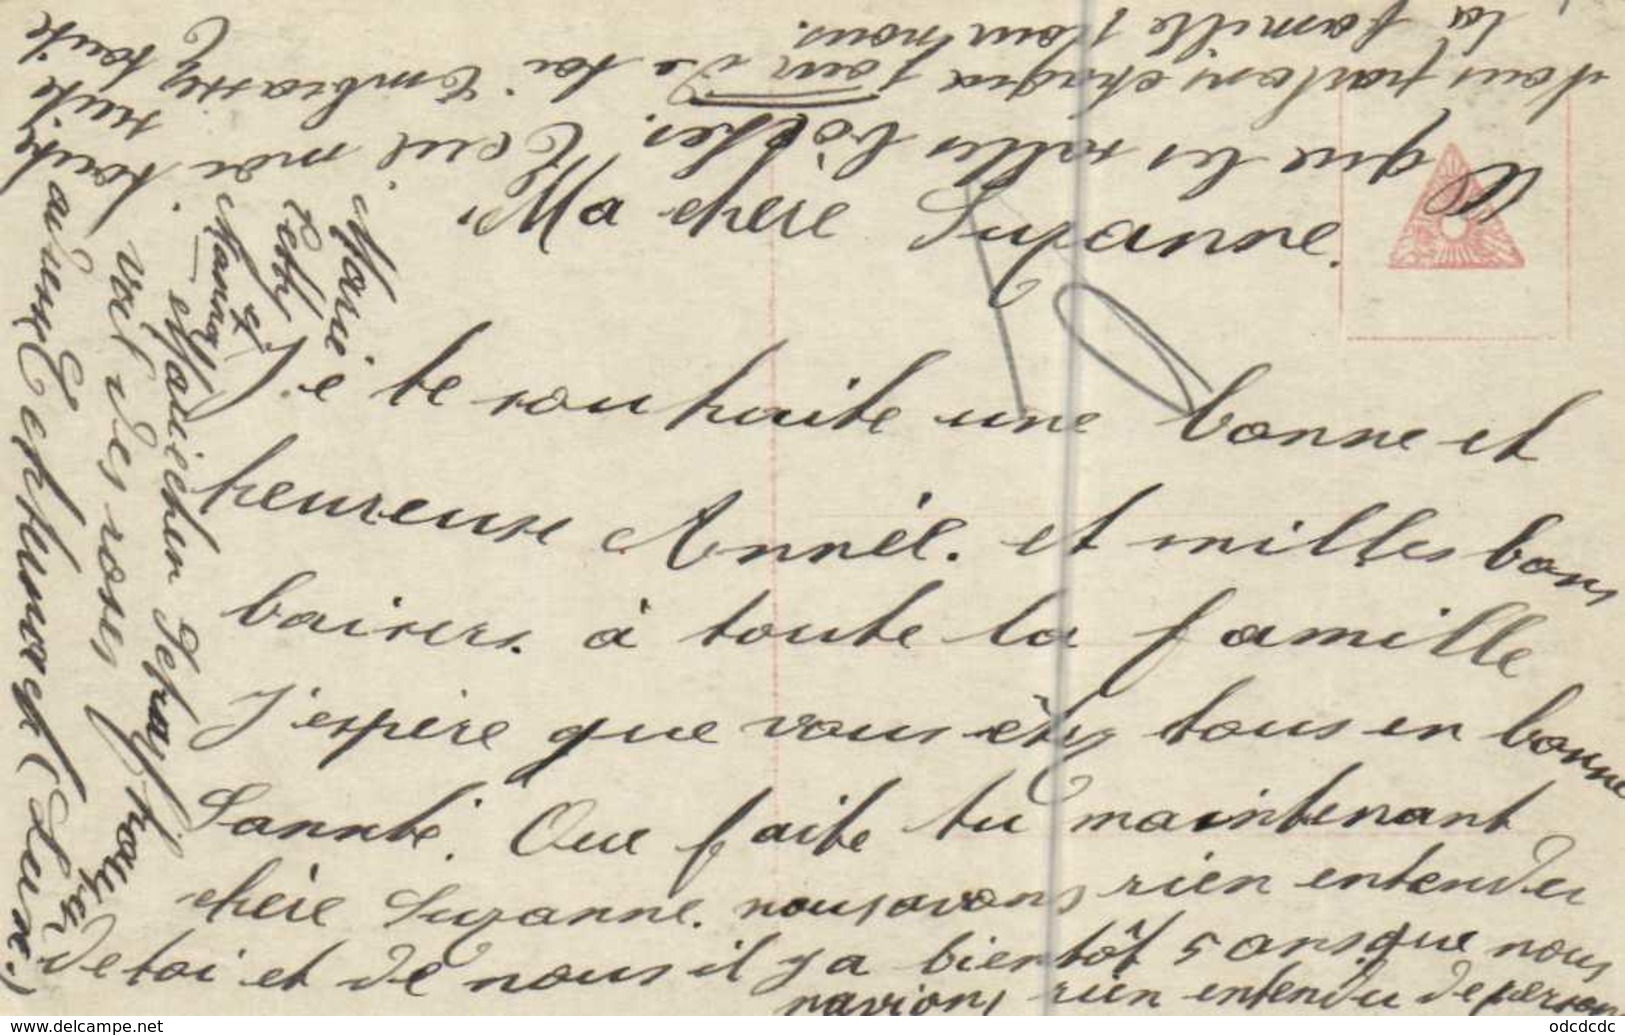 Ma chère Suzanne.
Je te souhaite une bonne et
heureuse Année. et milles bons
baisers. à toute la famille
J'espère que vous êtez tous en bonne
Sannté. Que faite tu maintenant
chère Suzanne. nous avons rien entendu
de toi et de nous il y a bientôt 5 ans. que nous
navions rien entendu de person
que les salles bôches. Ecrit moi toute suite
Nous parlons chaque jour de toi Embrassez toute
la famille pour nous.
Marie
et
Nanny
Madicken
val des roses
toute
suite
www.delcampe.net
odcdcdc